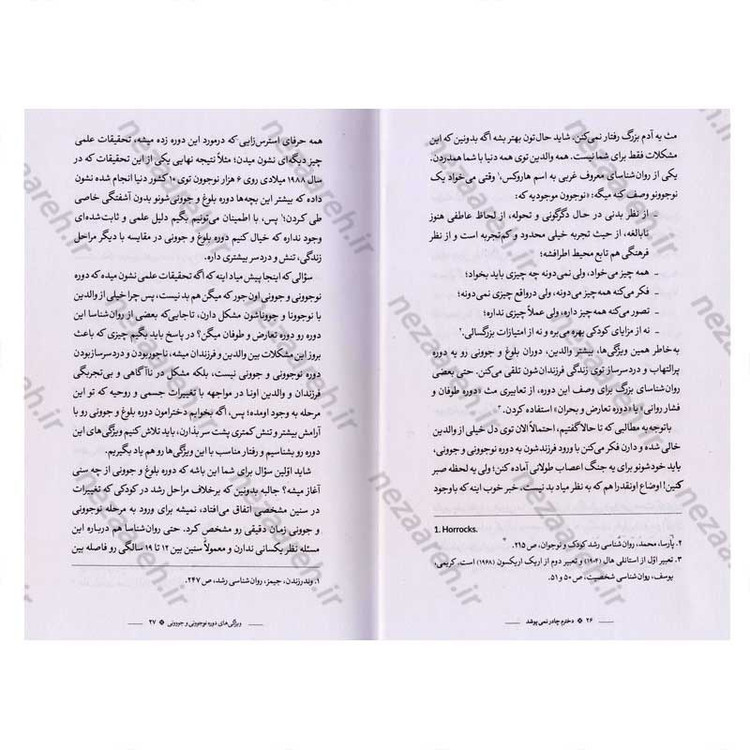 مث یه آدم بزرگ رفتار نمی‌کنن. شاید حال‌تون بهتر بشه اگه بدونین که این
مشکلات فقط برای شما نیست. همه والدین توی همه دنیا با شما همدردن.
یکی از روان‌شناسای معروف غربی به اسم هاروکس،۱ وقتی می‌خواد یک
نوجوونو وصف کنه میگه: «نوجوون موجودیه که:
ـ از نظر بدنی در حال دگرگونی و تحوله، از لحاظ عاطفی هنوز
نابالغه، از حیث تجربه خیلی محدود و کم‌تجربه است و از نظر
فرهنگی هم تابع محیط اطرافشه؛
ـ همه چیز می‌خواد، ولی نمی‌دونه چه چیزی باید بخواد؛
ـ فکر می‌کنه همه‌چیز می‌دونه، ولی درواقع چیزی نمی‌دونه؛
ـ تصور می‌کنه همه‌چیز داره، ولی عملاً چیزی نداره؛
ـ نه از مزایای کودکی بهره می‌بره و نه از امتیازات بزرگسالی.۲
به‌خاطر همین ویژگی‌ها، بیشتر والدین، دوران بلوغ و جوونی رو یه دوره
پرالتهاب و دردسرساز توی زندگی فرزندان‌شون تلقی می‌کنن. حتی بعضی
روان‌شناسای بزرگ برای وصف این دوره، از تعابیری مث «دوره طوفان و
فشار روانی» یا «دوره تعارض و بحران» استفاده کردن.۳
باتوجه‌به مطالبی که تا حالا گفتیم، احتمالاً الان توی دل خیلی از والدین
خالی شده و دارن فکر می‌کنن با ورود فرزندشون به دوره نوجوونی و جوونی،
باید خودشونو برای یه جنگ اعصاب طولانی آماده کنن؛ ولی یه لحظه صبر
کنین! اوضاع اونقدرا هم که به نظر میاد بد نیست. خبر خوب اینه که باوجود
1. Horrocks.
۲. پارسا، محمد، روان‌شناسی رشد کودک و نوجوان، ص ۲۱۵.
۳. تعبیر اوّل از استانلی هال (۱۹۰۴) و تعبیر دوم از اریک اریکسون (۱۹۶۸) است. کریمی،
یوسف، روان‌شناسی شخصیت، ص ۵۰ و ۵۱.
۲۶ ❖ دخترم چادر نمی‌پوشد
همه حرفای استرس‌زایی که درمورد این دوره زده میشه، تحقیقات علمی
چیز دیگه‌ای نشون میدن؛ مثلاً نتیجه نهایی یکی از این تحقیقات که در
سال ۱۹۸۸ میلادی روی ۶ هزار نوجوون توی ۱۰ کشور دنیا انجام شده نشون
داده که بیشتر این بچه‌ها دوره بلوغ و جوونی‌شونو بدون آشفتگی خاصی
طی کردن؛۱ پس، با اطمینان می‌تونیم بگیم دلیل علمی و ثابت‌شده‌ای
وجود نداره که خیال کنیم دوره بلوغ و جوونی در مقایسه با دیگر مراحل
زندگی، تنش و دردسر بیشتری داره.
سؤالی که اینجا پیش میاد اینه که اگه تحقیقات علمی نشون میده که دوره
نوجوونی و جوونی اون‌جور که میگن هم بد نیست، پس چرا خیلی از والدین
با نوجوونا و جووناشون مشکل دارن، تاجایی‌که بعضی از روان‌شناسا این
دوره رو دوره تعارض و طوفان میگن؟ در پاسخ باید بگیم چیزی که باعث
بروز این مشکلات بین والدین و فرزندان میشه، ناجوربودن و دردسرسازبودن
دوره نوجوونی و جوونی نیست، بلکه مشکل در ناآگاهی و بی‌تجربگی
فرزندان و والدین اونا در مواجهه با تغییرات جسمی و روحیه که تو این
مرحله به وجود اومده؛ پس، اگه بخوایم دخترامون دوره بلوغ و جوونی رو با
آرامش بیشتر و تنش کمتری پشت سر بذارن، باید تلاش کنیم ویژگی‌های این
دوره رو بشناسیم و رفتار مناسب با این ویژگی‌ها رو هم یاد بگیریم.
شاید اوّلین سؤال برای شما این باشه که دوره بلوغ و جوونی از چه سنی
آغاز میشه؟ جالبه بدونین که برخلاف مراحل رشد در کودکی که تغییرات
در سنین مشخصی اتفاق می‌افتاد، نمیشه برای ورود به مرحله نوجوونی
و جوونی زمان دقیقی رو مشخص کرد. حتی روان‌شناسا هم درباره این
مسئله نظر یکسانی ندارن و معمولاً سنین بین ۱۲ تا ۱۹ سالگی رو فاصله بین
۱. وندرزندن، جیمز، روان‌شناسی رشد، ص ۲۴۷.
ویژگی‌های دوره نوجوونی و جوونی ❖ ۲۷
nezaareh.ir